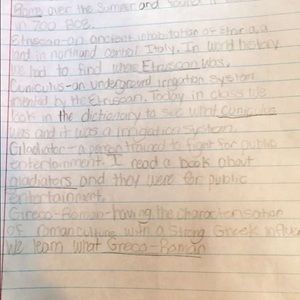 Rome over the Summer and found it
in 700 BCE.
Etruscan-an ancient inhabitation of Etruria, a
land in north and central Italy. In world history
we had to find where Etruscan was.
Cuniculus-an underground irrigation system
invented by the Etruscan. Today in class we
look in the dictionary to see what Cuniculus
was and it was a irrigation system.
Giladiator-a person trained to fight for public
entertainment. I read a book about
gladiators and they were for public
entertainment.
Greco-Roman-having the characterisation
of roman culture with a strong Greek influen
We learn what Greco-Roman